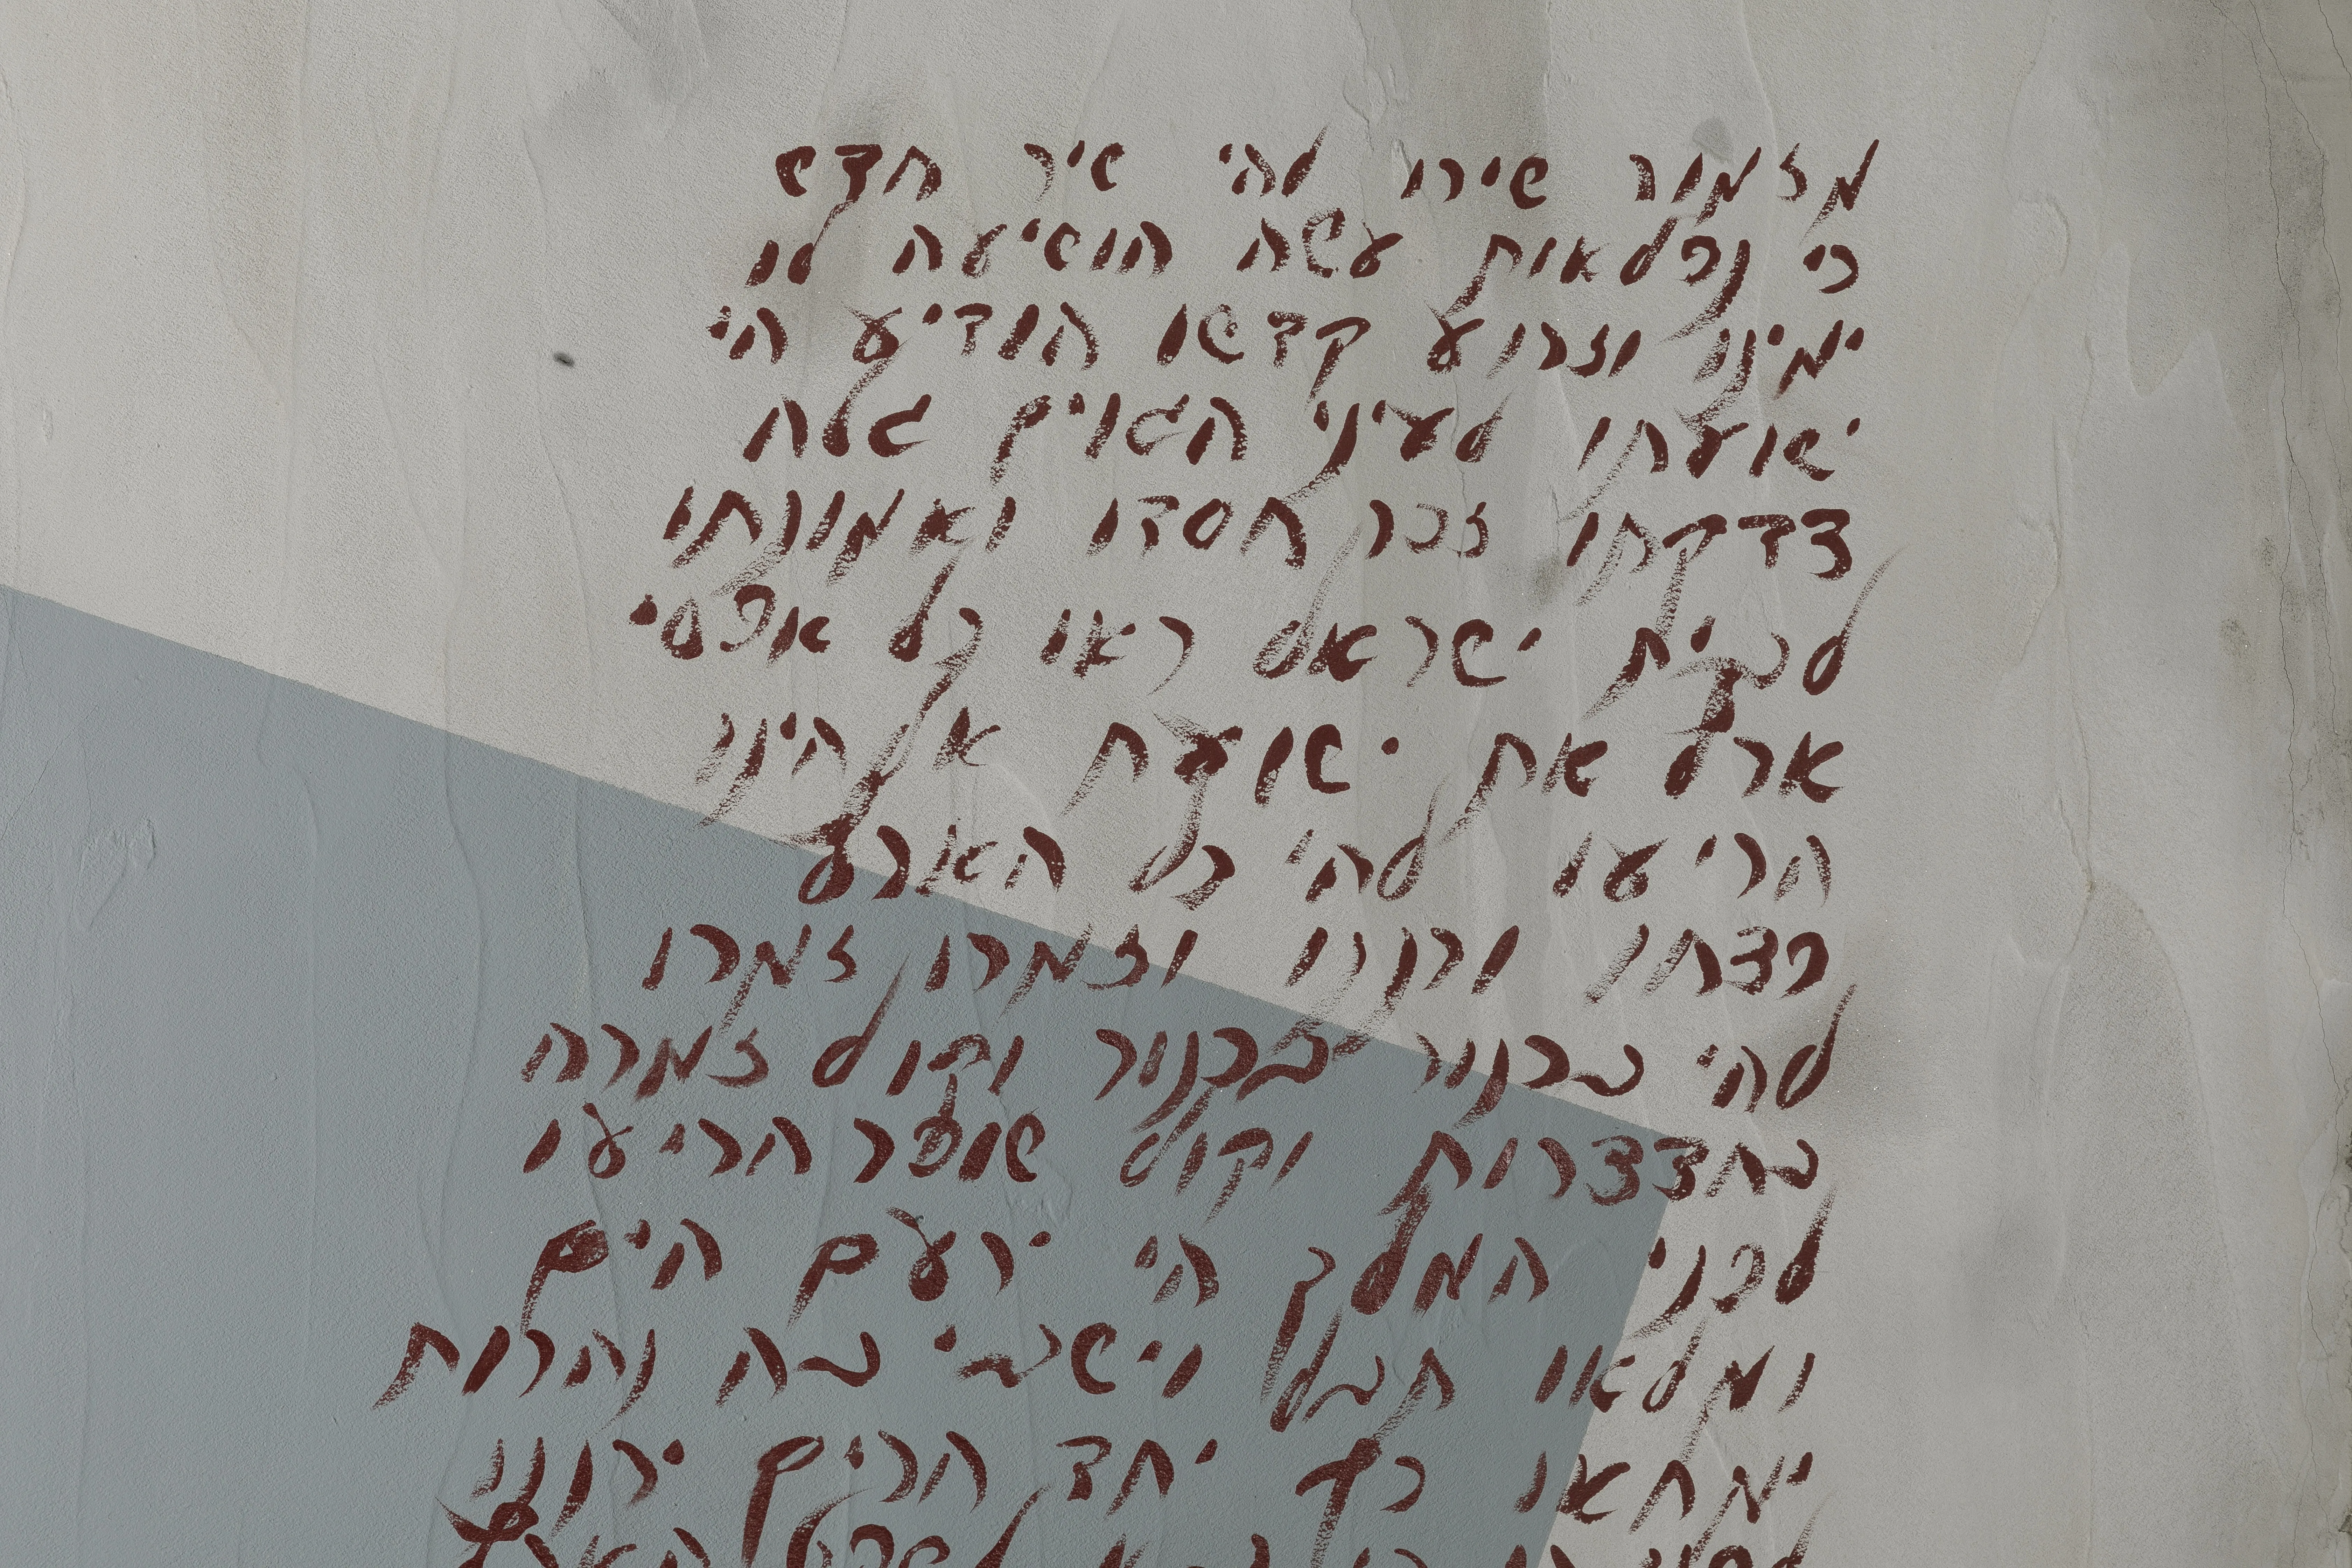 מזמור שירו להי שיר חדש
כי נפלאות עשה הושיעה לו
ימינו וזרוע קדשו הודיע הי
ישועתו לעיני הגוים גלה
צדקתו זכר חסדו ואמונתו
לבית ישראל ראו כל אפסי
ארץ את ישועת אלהינו
הריעו להי כל הארץ
פצחו ורננו וזמרו זמרו
להי בכנור בכנור וקול זמרה
בחצצרות וקול שופר הריעו
לפני המלך הי ירעם הים
ומלאו תבל וישבי בה נהרות
ימחאו כף יחד הרים ירננו